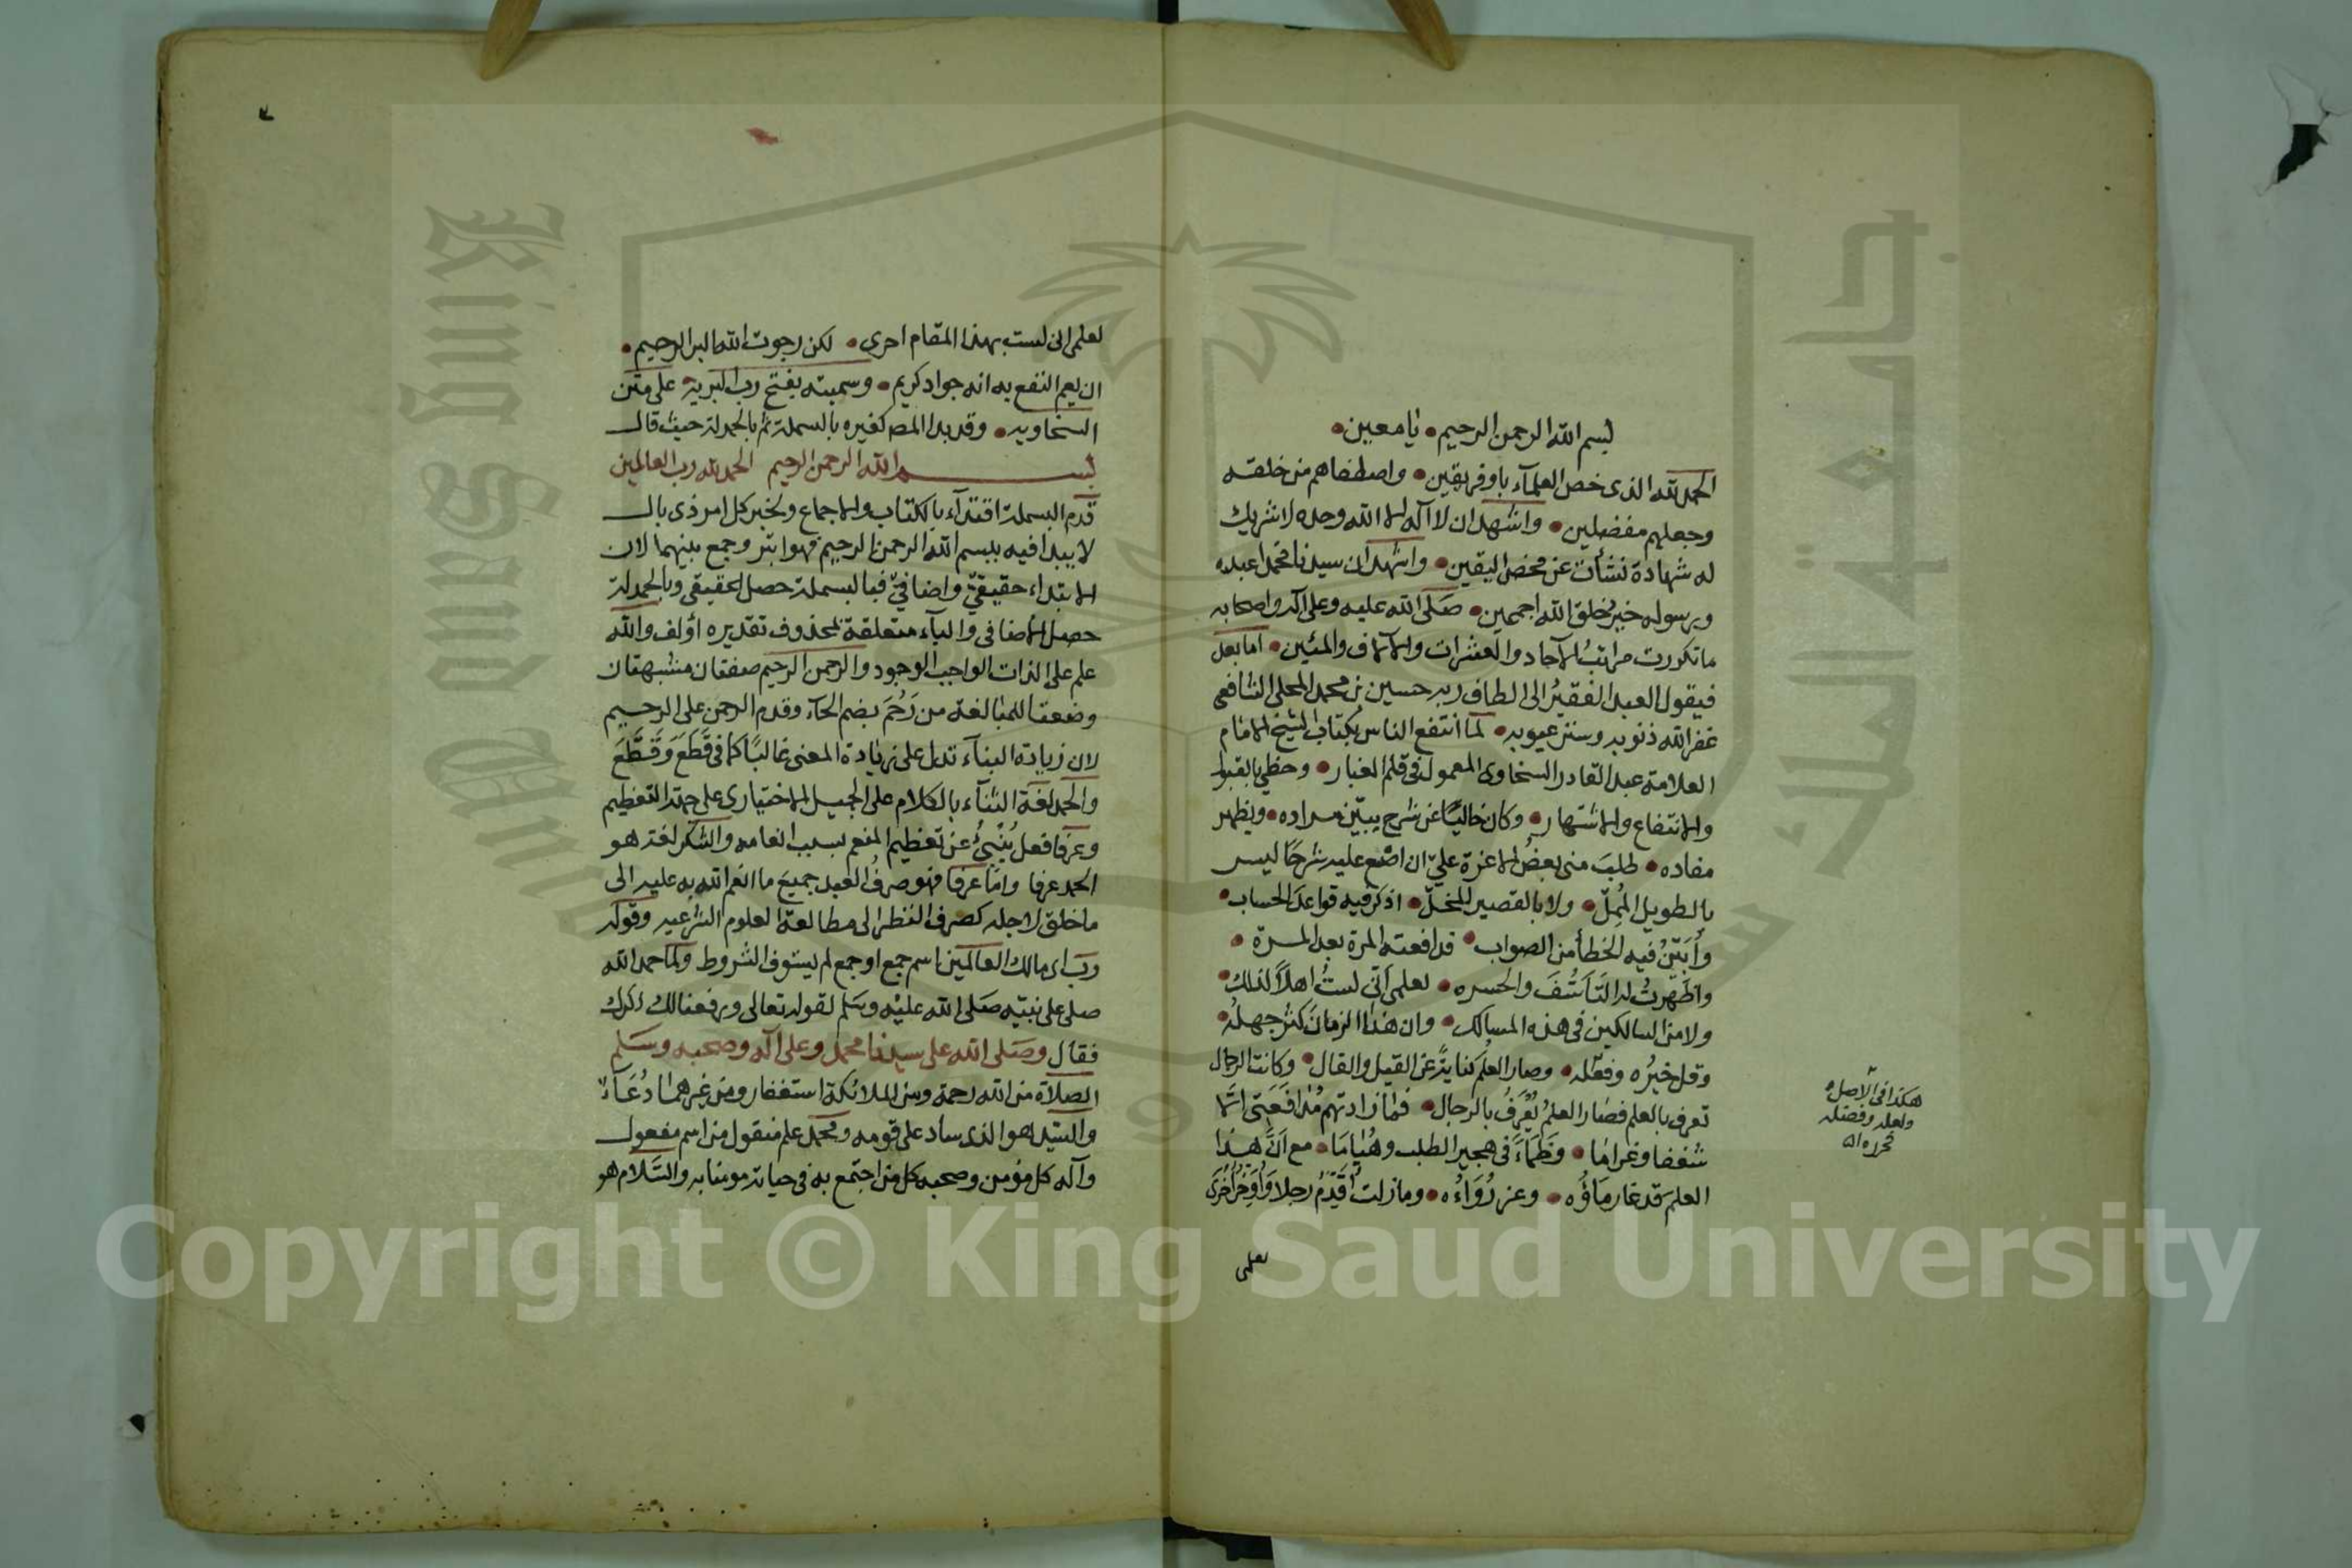 بسم الله الرحمن الرحيم • يا معين •
الحمد لله الذى خص العلمآء باوفر يقين • واصطفاهم من خلقه
وجعلهم مفضلين • واشهد ان لا اله الا الله وحده لا شريك
له شهادة نشأت عن محض اليقين • واشهد ان سيدنا محمدا عبده
ورسوله خير خلق الله اجمعين • صلى الله عليه وعلى آله واصحابه
ما تكررت مراتبُ الآحاد والعشرات والآلاف والمئين • اما بعد
فيقول العبد الفقيرُ الى الطاف ربه حسين بن محمد المحلى الشافعى
غفر الله ذنوبه وستر عيوبه • لما انتفع الناس بكتاب الشيخ الامام
العلامة عبد القادر السخاوى المعمول فى قلم الغبار • وحظي بالقبول
والانتفاع والاشتهار • وكان خاليًا عن شرح يبيّن مراده • ويظهر
مفاده • طلبَ منى بعضُ الاعزة عليّ ان اضع عليه شرحًا ليس
بالطويل المُمِلّ • ولا بالقصير المخلّ • اذكر فيه قواعدَ الحساب •
وأبَيّنُ فيه الخطأ من الصواب • فدافعته المرة بعد المرة •
واظهرتُ له التَأسُّفَ والحسره • لعلمى أنى لستُ اهلاً لذلك •
ولا من السالكين فى هذه المسالك • وان هذا الزمانَ كثُر جهلهُ •
وقل خيرُه وفعله • وصار العلم كناية عن القيل والقال • وكانت الرجال
تعرف بالعلم فصار العلمُ يُعْرَفُ بالرجال • فما زادتهم مُدافَعَتى الّا
شغفا وغراما • وظَمَاءً فى هجير الطلب وهُيَامَا • مع اَنَّ هذا
العلمَ قد غار مَاؤُه • وعز رُوَاءُه • وما زلت أُقَدِّمُ رجلا وَأُؤخِّرُ أخْرَى
لعلمى
هكذا فى الاصل
ولعله وفضله
لعلمى انى لست بهذا المقام احرى • لكن رجوت الله البر الرحيم •
ان يعم النفع به انه جواد كريم • وسميته بفتح رب البرية على متن
السخاويه • وقد بدا المصـ كغيره بالبسملة ثم بالحمدلة حيث قال
بسم الله الرحمن الرحيم الحمد لله رب العالمين
قدم البسملة اقتدآء بالكتاب والاجماع ولخبر كل امر ذى بال
لا يبدا فيه ببسم الله الرحمن الرحيم فهو ابتر وجمع بينهما لان
الابتداء حقيقيّ واضافيّ فبالبسملة حصل الحقيقى وبالحمدلة
حصل الاضافى والبآء متعلقة بمحذوف تقديره أؤلف والله
علم على الذات الواجب الوجود والرحمن الرحيم صفتان مشبهتان
وضعتا للمبالغة من رَحُمَ بضم الحآء وقدم الرحمن على الرحيم
لان زيادة البنآء تدل على زيادة المعنى غالبًا كما فى قَطَعَ وَقَطَّعَ
والحمد لغة الثنآء بالكلام على الجميل الاختيارى على جهة التعظيم
وعرفا فعل يُنْبِئُ عن تعظيم المنعم بسبب انعامه والشكر لغة هو
الحمد عرفا واما عرفا فهو صرفُ العبد جميعَ ما انعم الله به عليه الى
ما خلق لاجله كصرف النظر الى مطالعة العلوم الشرعيه وقوله
رب اى مالك العالمين اسم جمع او جمع لم يستوف الشروط ولما حمد الله
صلى على نبيّه صَلى الله عليْه وسَلم لقوله تعالى ورفعنا لك ذكرك
فقال وصَلى الله على سيدنا محمد وعلى آله وصحبه وسَلم
الصلاة من الله رحمة ومن الملائكة استغفار ومن غيرهما دُعَآءٌ
والسّيد هو الذى ساد على قومه ومحمد علم منقول من اسم مفعول
وآله كل مؤمن وصحبه كل من اجتمع به فى حياته مومنا به والسَّلام هو
Copyright © King Saud University